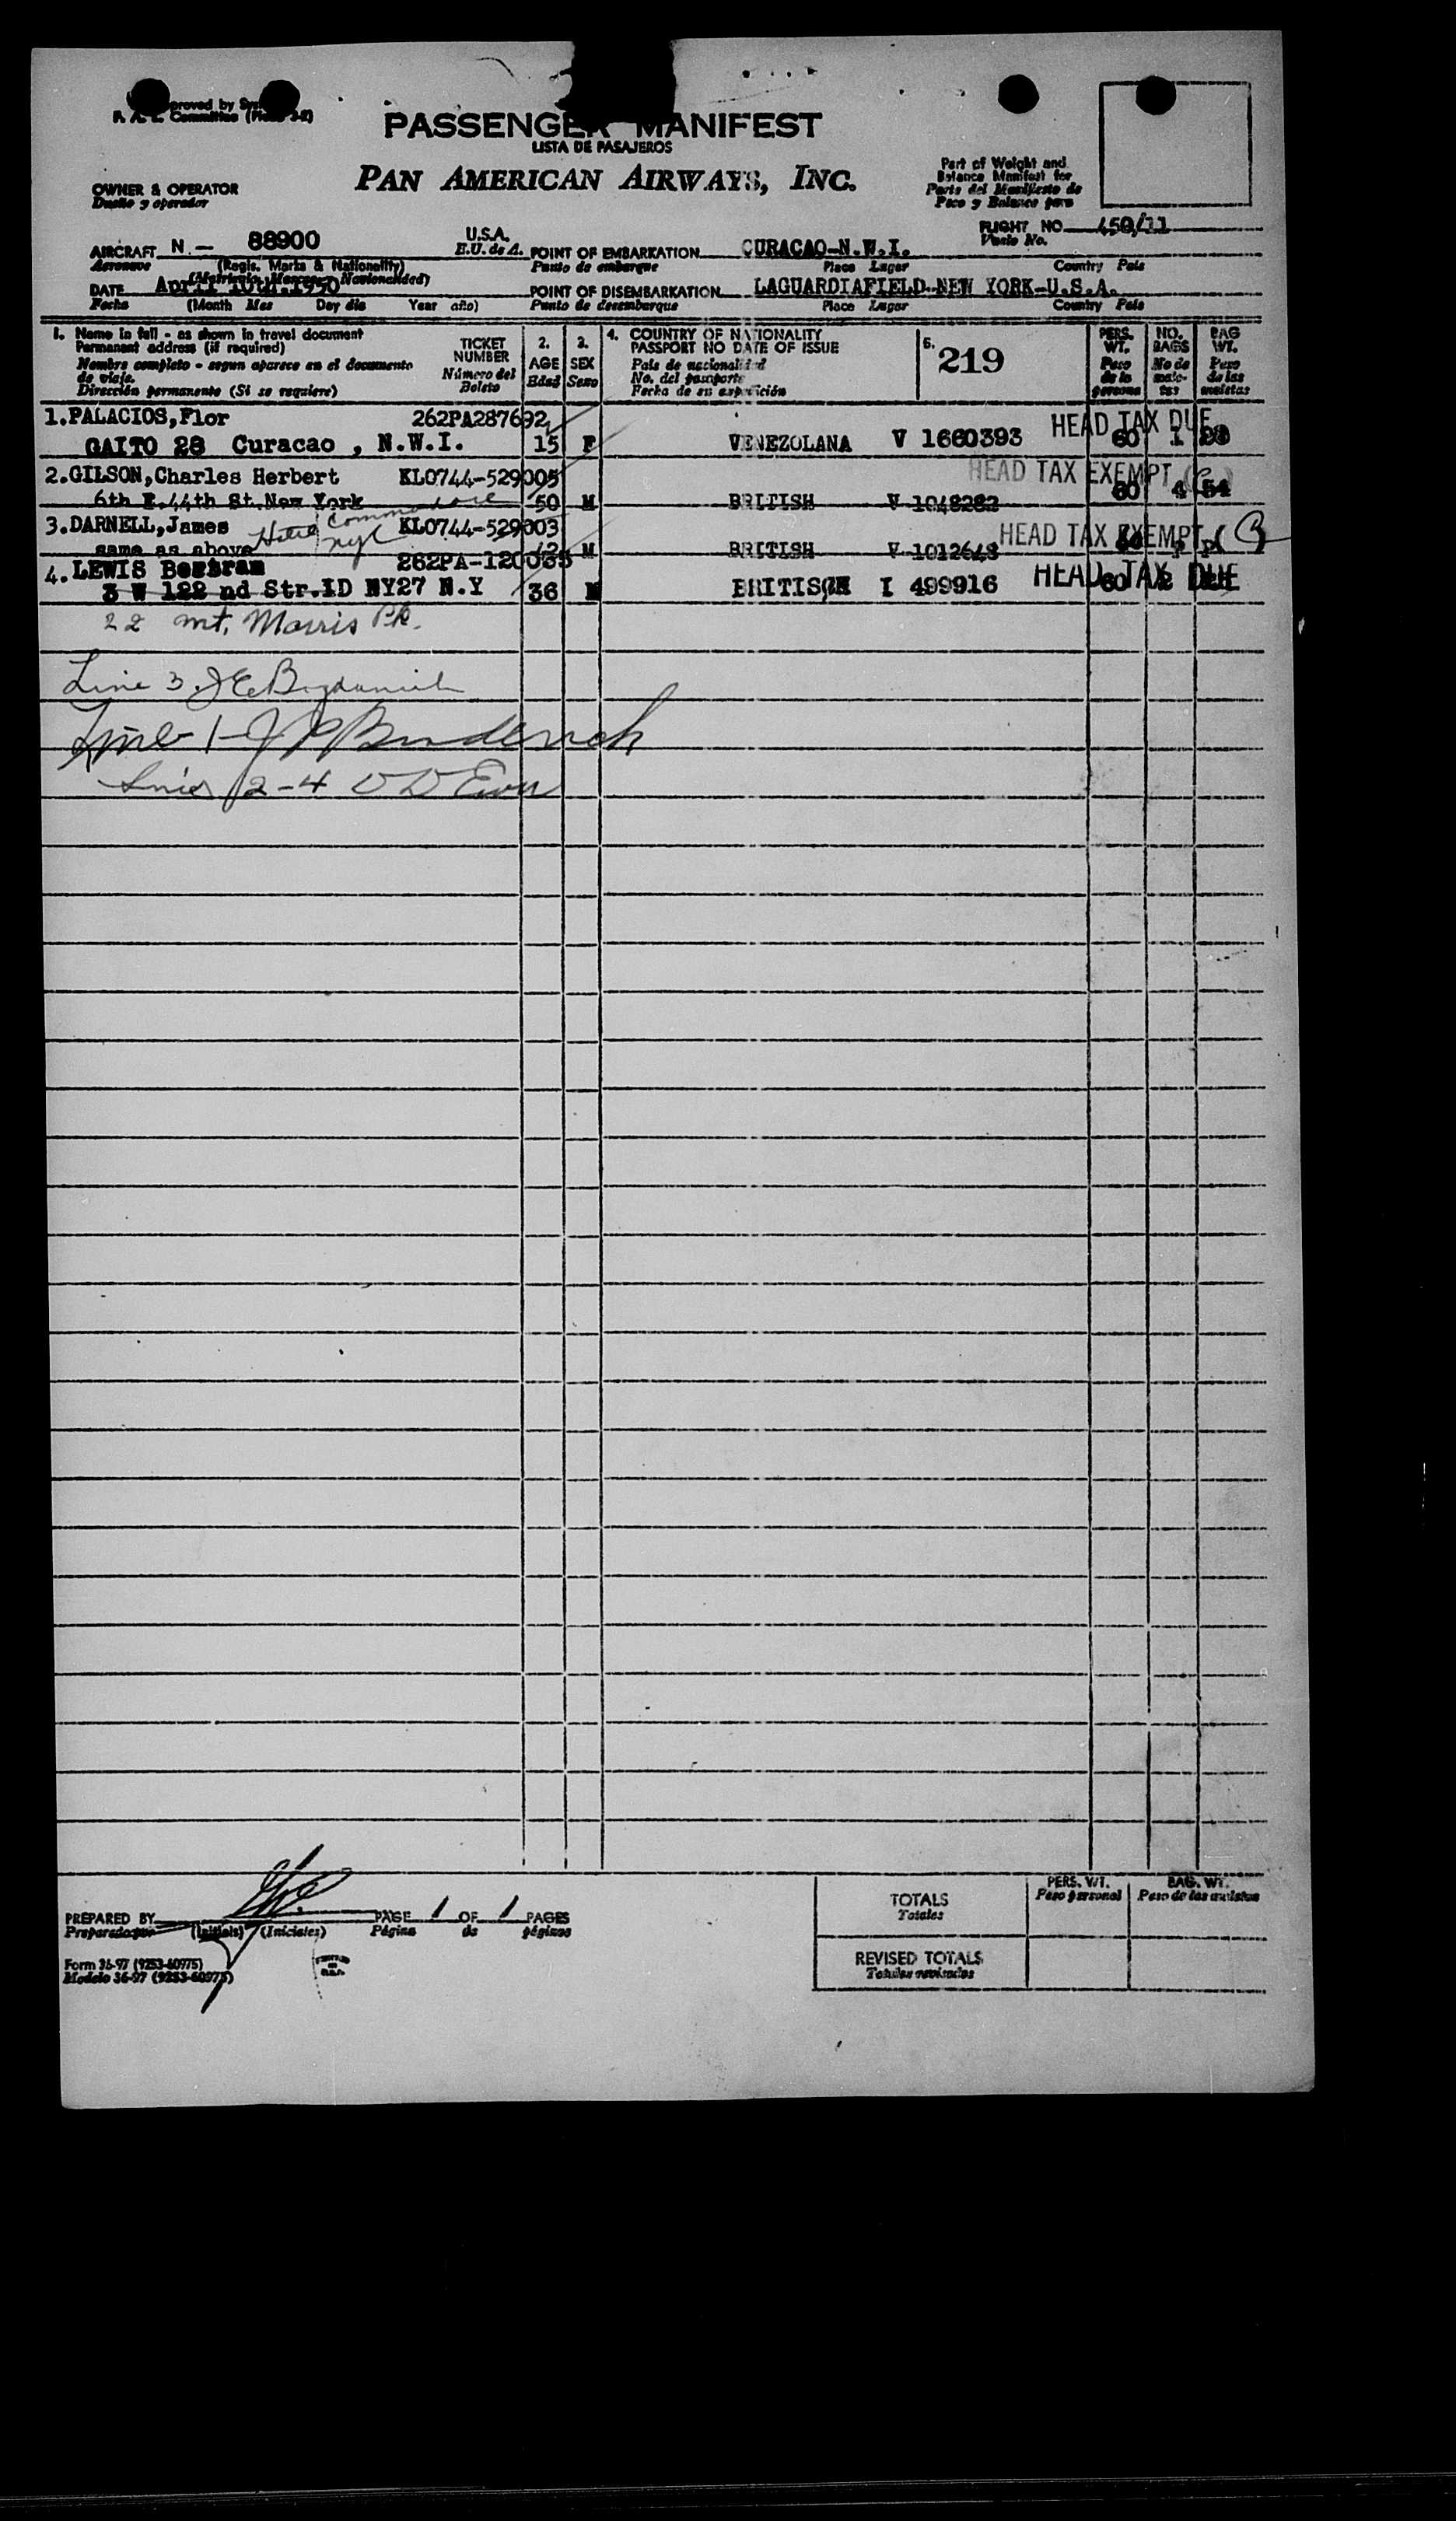 proved by
F. A. L. Committee
PASSENGER MANIFEST
LISTA DE PASAJEROS
PAN AMERICAN AIRWAYS, INC.
Part of Weight and
Balance Manifest for
Parte del Manifiesto de
Peso y Balance para
OWNER & OPERATOR
Dueño y operador
FLIGHT NO. 450/11
Vuelo No.
AIRCRAFT N. — 88900 U.S.A.
E.U. de A.
Aeronave (Regis. Marks & Nationality)
POINT OF EMBARKATION CURACAO-N.W.I.
Punto de embarque Place Lugar Country País
DATE April 10th.1950
Fecha (Month Mes Day día Year año)
POINT OF DISEMBARKATION LAGUARDIAFIELD-NEW YORK-U.S.A.
Punto de desembarque Place Lugar Country País
1. Name in full - as shown in travel document
Permanent address (if required)
Nombre completo - segun aparece en el documento
de viaje.
Dirección permanente (Si se requiere)
TICKET
NUMBER
Número del
Boleto
2.
AGE
Edad
3.
SEX
Sexo
4. COUNTRY OF NATIONALITY
PASSPORT NO DATE OF ISSUE
País de nacionalidad
No. del pasaporte
Fecha de su expedición
5.
219
PERS.
WT.
Peso
de la
persona
NO.
BAGS
No de
male-
tas
BAG
WT.
Peso
de las
maletas
1.PALACIOS,Flor 262PA287692 HEAD TAX DUE
GAITO 28 Curacao , N.W.I. 15 F VENEZOLANA V 1660393 60 1
2.GILSON,Charles Herbert KLO744-529005 HEAD TAX EXEMPT
6th E.44th St.New York 50 M BRITISH V 1048282 60 4 54
Hotel Commodore
NYC
3.DARNELL,James KLO744-529003 HEAD TAX EXEMPT
same as above 42 M BRITISH V 1012648
4.LEWIS Bertram 262PA-120085 HEAD TAX DUE
3 W 122 nd Str.ID NY27 N.Y 36 M BRITISCH I 499916 60 2
22 Mt. Morris Pk.
Line 3.
Line 1-
Lines 2-4
PREPARED BY
Preparado por (Initials) (Iniciales)
PAGE 1 OF 1 PAGES
Página de páginas
Form 36-97 (9253-60975)
Modelo 36-97 (9253-60975)
PERS. WT.
Peso personal
BAG. WT.
Peso de las maletas
TOTALS
Totales
REVISED TOTALS
Totales revisados